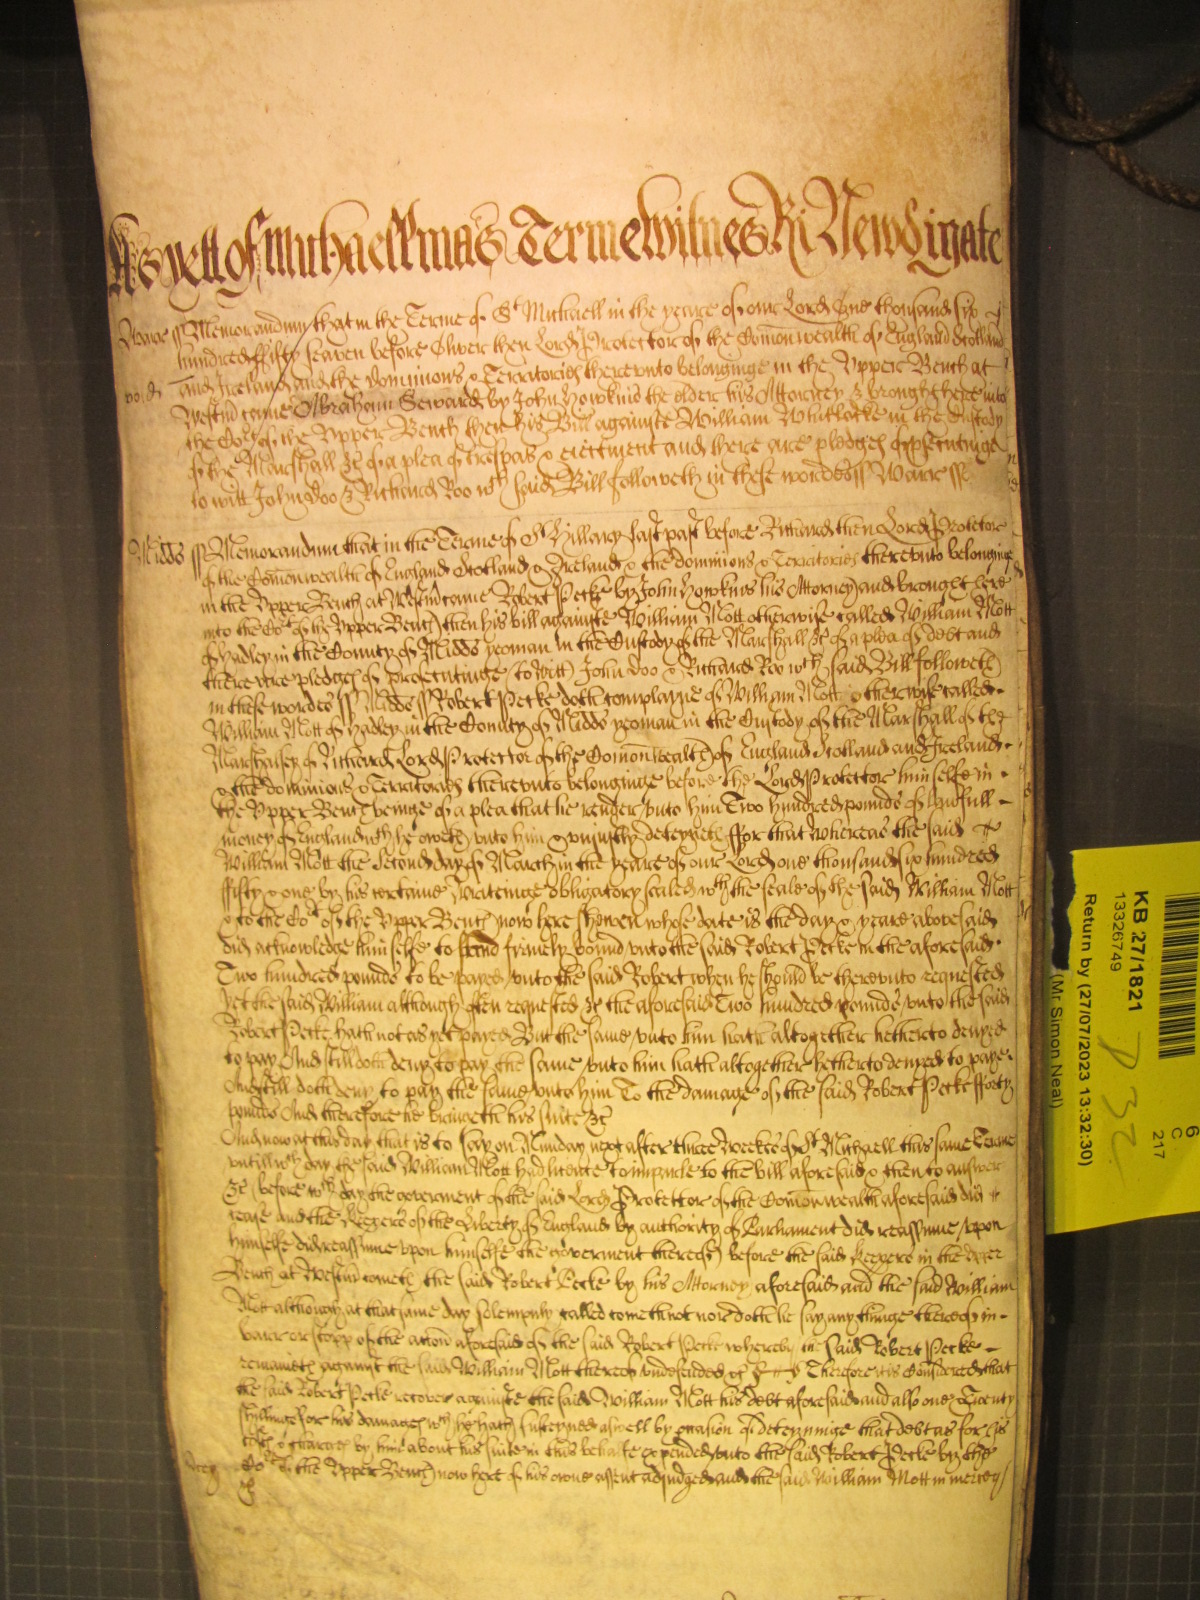 As yett of Michaellmas Terme Witnes Ri Newdigate
Warr ss Memorandum that in the Terme of St Michaell in the yeare of our Lord One thousand six
hundred fifty seaven before Oliver then Lord Protector of the Comonwealth of England Scotland
void and Ireland and the dominions & Territories thereunto belonginge in the Upper Bench at
Westm came Abraham Seward by John Howkins the elder his Attorney & brought here into
the Cot of the Upper Bench then his Bill againste William Whitlocke in the Custody
of the Marshall &c of a plea of trespas & eiectment and there are pledges of psecutinge
to witt John Doo & Richard Roo wch said Bill followeth in these wordes ss Warr ss
Midds ss Memorandum that in the Terme of St Hillary last past before Richard then Lord Protector
of the Comonwealth of England Scotland & Ireland & the dominions & Territories thereunto belonginge
in the Upper Bench at Westm came Robert Pecke by John Howkins his Attorney and brought here
into the Cot of the Upper Bench then his bill againste William Mott otherwise called William Mott
of Hadley in the County of Midds yeoman in the Custody of the Marshall &c of a plea of debt and
there are pledges of prosecutinge to witt John Doo & Richard Roo wch said Bill followeth
in these wordes ss Midds ss Robert Pecke doth complayne of William Mott otherwise called
William Mott of Hadley in the County of Midds yeoman in the Custody of the Marshall of the
Marshalsey of Richard Lord Protector of the Comonwealth of England Scotland and Ireland
& the dominions & Territories thereunto belonginge before the Lord Protector himselfe in
the Upper Bench beinge of a plea that he render unto him Two hundred pounds of lawfull
money of England wch he oweth unto him & uniustly deteyneth ffor that Whereas the said
William Mott the second day of March in the yeare of our Lord one thousand six hundred
ffifty & one by his certaine Writeinge obligatory sealed wth the seale of the said William Mott
& to the Cot of the Upper Bench now here shewen whose date is the day & yeare abovesaid
did acknowledge himselfe to be and firmely bound unto the said Robert Pecke in the aforesaid
Two hundred pounds to be payed unto the said Robert when he should be thereunto requested
yet the said William although often requested &c the aforesaid Two hundred pounds unto the said
Robert Pecke hath not as yet payed But the same unto him hath altogether hetherto denyed
to pay And still doth deny to pay the same unto him hath altogether hetherto denyed to paye
And still doth deny to pay the same unto him To the damage of the said Robert Pecke fforty
pounds And therefore he bringeth his suite &c
And now at this day that is to say on Munday next after three weekes of St Michaell this same Terme
untill wch day the said William Mott had licence to imparle to the bill aforesaid & then to answer
&c before wch day the goverment of the said Lord Protector of the Comonwealth aforesaid did
cease and the Keepers of the Liberty of England by authority of Parliament did reassume upon
himselfe did reassume upon himselfe the goverment thereof before the said Keepers in the Upper
Bench at Westm cometh the said Robert Pecke by his Attorney aforesaid and the said William
Mott although at that same day solemnly called cometh not nor doth he say any thinge thereof in
barr or stopp of the action aforesaid of the said Robert Pecke whereby the said Robert Pecke
remaineth against the said William Mott thereof undefended &c Therefore it is Considered that
the said Robert Pecke recover againste the said William Mott his debt aforesaid and also one & twenty
shillings for his damages wch he hath susteyned aswell by occasion of deteyninge that debt as for his
costs & charges by him about his suite in this behalfe expended unto the said Robert Pecke by the
mercy Cot of the Upper Bench now here of his owne assent adjudged and the said William Mott in mercy
&c
KB 27/1821
13326749
Return by (27/07/2023 13:32:30)
(Mr Simon Neal)
D32
6
C
217